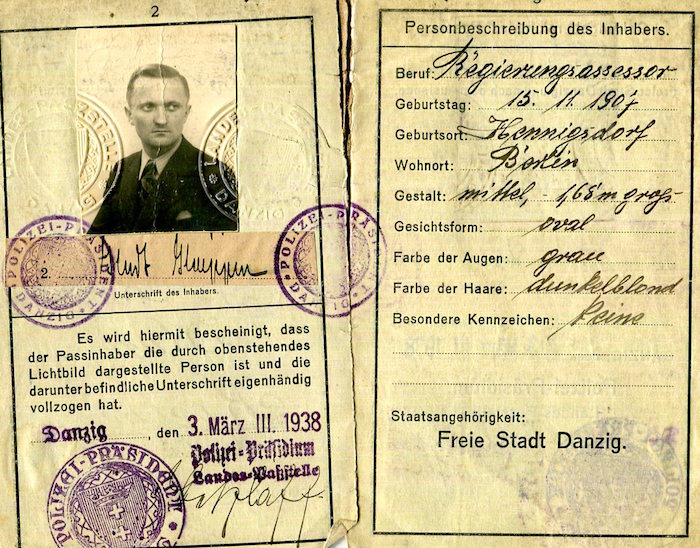 2
LANDES-PAßSTELLE
DANZIG
POLIZEI-PRÄSIDENT
DANZIG
2.
Unterschrift des Inhabers.
Es wird hiermit bescheinigt, dass
der Passinhaber die durch obenstehendes
Lichtbild dargestellte Person ist und die
darunter befindliche Unterschrift eigenhändig
vollzogen hat.
Danzig, den 3. März III. 1938
Polizei-Präsidium
Landes-Paßstelle
POLIZEI-PRÄSIDENT
Personbeschreibung des Inhabers.
Beruf: Regierungsassessor
Geburtstag: 15. 11. 1907
Geburtsort: Hennigsdorf
Wohnort: Berlin
Gestalt: mittel, 1,65 m groß
Gesichtsform: oval
Farbe der Augen: grau
Farbe der Haare: dunkelblond
Besondere Kennzeichen: keine
Staatsangehörigkeit:
Freie Stadt Danzig.